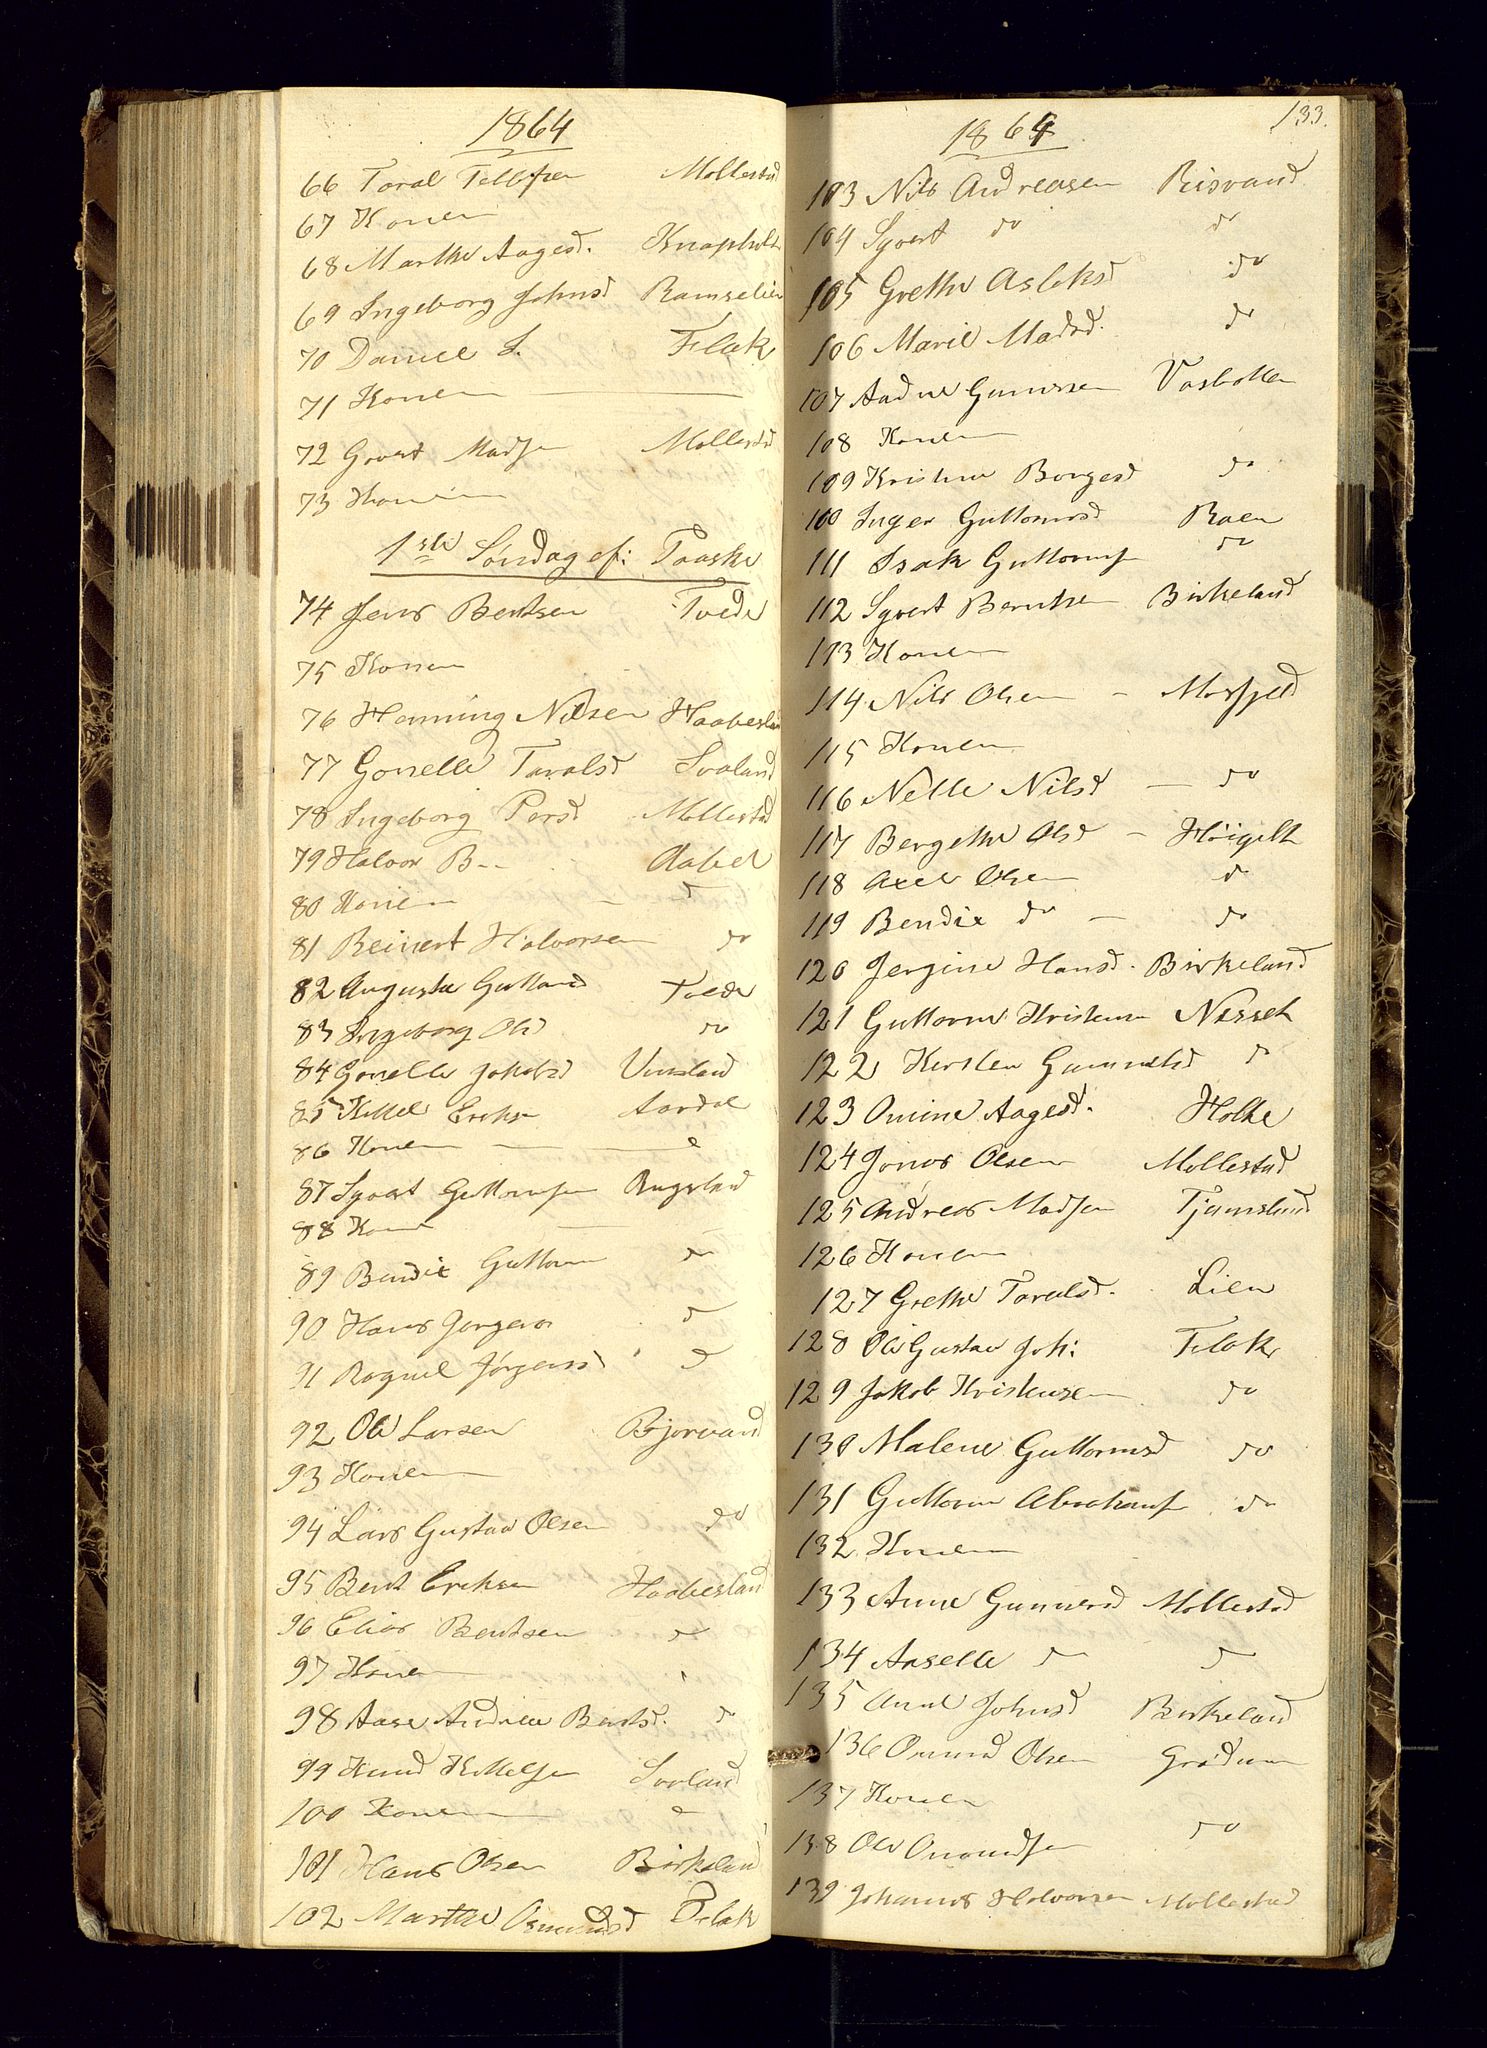 1864
66 Taral Tellefsen Mollestad
67 Konen
68 Marthe Aagesd. Knapholt
69 Ingeborg Johnsd Ramselien
70 Daniel S. Flak
71 Konen
72 Govert Madsen Mollestad
73 Konen
1ste Søndag ef: Paaske
74 Jens Bentsen Tvede
75 Konen
76 Henning Nilsen Haabesland
77 Gonelle Taralsd Svaland
78 Ingeborg Persd Mollestad
79 Halvor B-- Aabel
80 Konen do
81 Reinert Halvorsen do
82 Auguste Guttormsd Tvede
83 Ingeborg Olsd do
84 Gonelle Jakobsd Vinsland
85 Kittel Eriksen Aardal
86 Konen
87 Syvert Guttormsen Rugsland
88 Konen
89 Bendix Guttormsen do
90 Hans Jørgensen do
91 Ragnil Jørgensd do
92 Ole Larsen Bjorvand
93 Konen
94 Lars Gustav Olsen do
95 Bent Eriksen Haabesland
96 Elias Bentsen do
97 Konen
98 Aase Andrea Bentsd. do
99 Knud Kittelsen Svaland
100 Konen do
101 Hans Olsen Birkeland
102 Marthe Osmundsd Flak
133.
1864
103 Nils Andreasen Risvand
104 Syvert do do
105 Grethe Aslaksd do
106 Marie Madsd. do
107 Aadne Gunersen Vasbotten
108 Konen
109 Kristine Borgesd do
100 Inger Guttormsd Raen
111 Isak Guttormsen do
112 Syvert Berntsen Birkeland
113 Konen
114 Nils Olsen - Mosfjeld
115 Konen
116 Nelle Nilsd - do
117 Bergethe Olsd - Høigilt
118 Axel Olsen do
119 Bendix do - do
120 Jørgine Hansd. Birkeland
121 Guttorm Kristensen Nesset
122 Kirsten Gunnelsd do
123 Omine Aagesd. Holte
124 Jonas Olsen Mollestad
125 Andreas Madsen Tjamsland
126 Konen
127 Grethe Taralsd. Lien
128 Ole Gustav Joh: Flak
129 Jakob Kristensen do
130 Malene Guttormsd do
131 Guttorm Abrahams do
132 Konen
133 Anne Gunnersd Mollestad
134 Aaselle do do
135 Anne Johnsd Birkeland
136 Omund Olsen Grødum
137 Konen
138 Ole Omundsen do
139 Johannes Halvorsen Mollestad